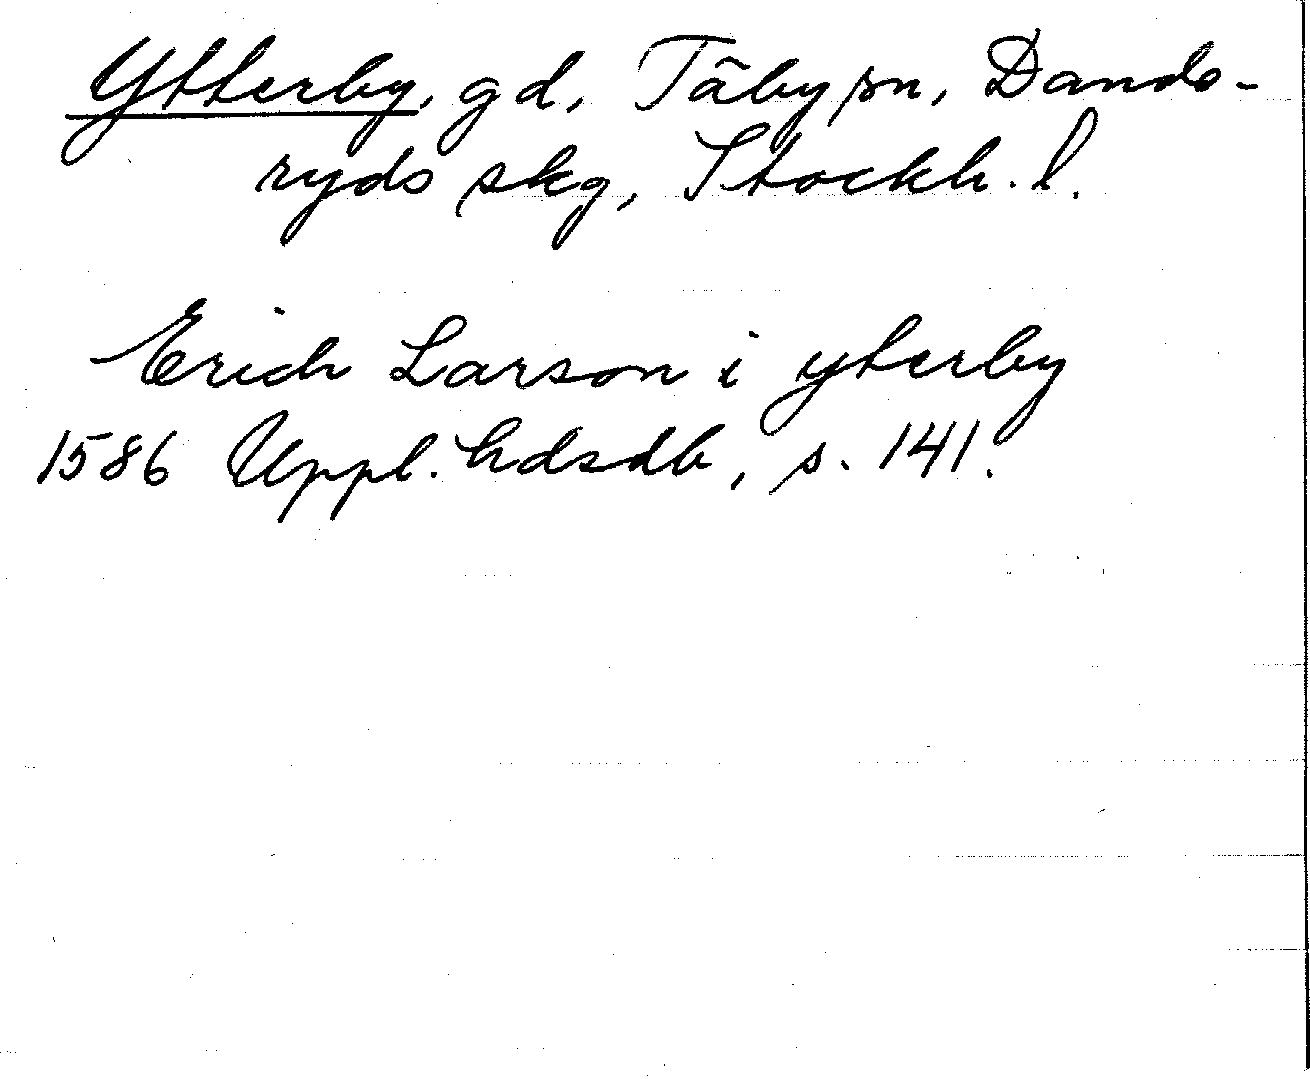 Ytterby, gd, Täby sn, Dande-
ryds skg, Stockh. l.
Erich Larson i yterby
1586 Uppl. hdsdb, s. 141.